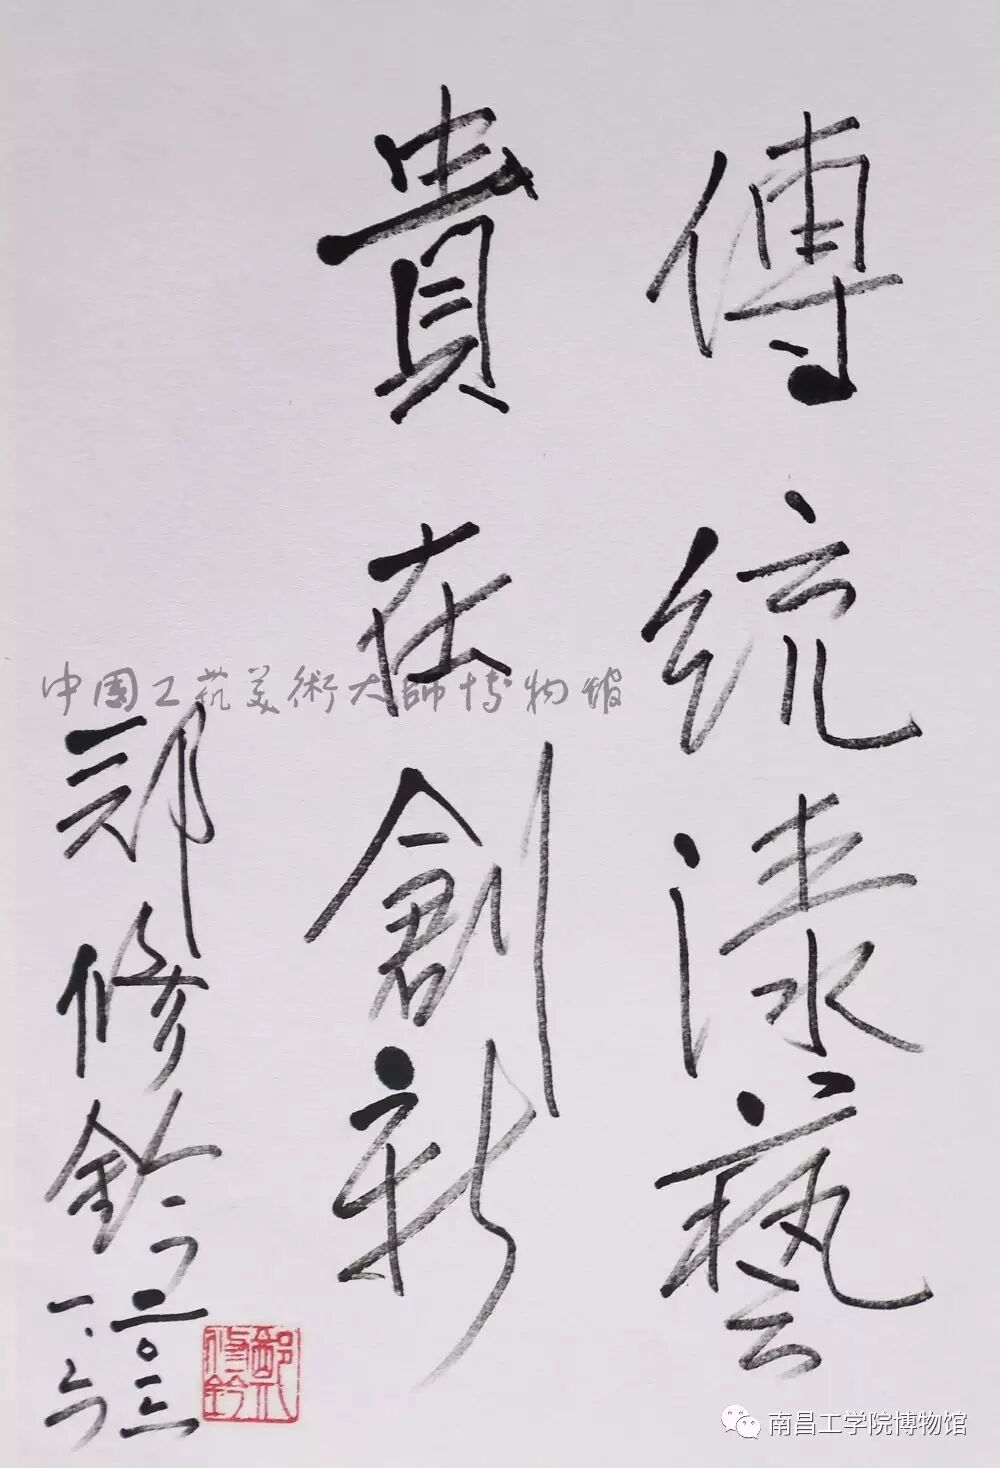 傳統漆藝
貴在創新
郑修鈐
二〇一三
一.六
鄭修鈐
中国工艺美術大師博物館
南昌工学院博物馆